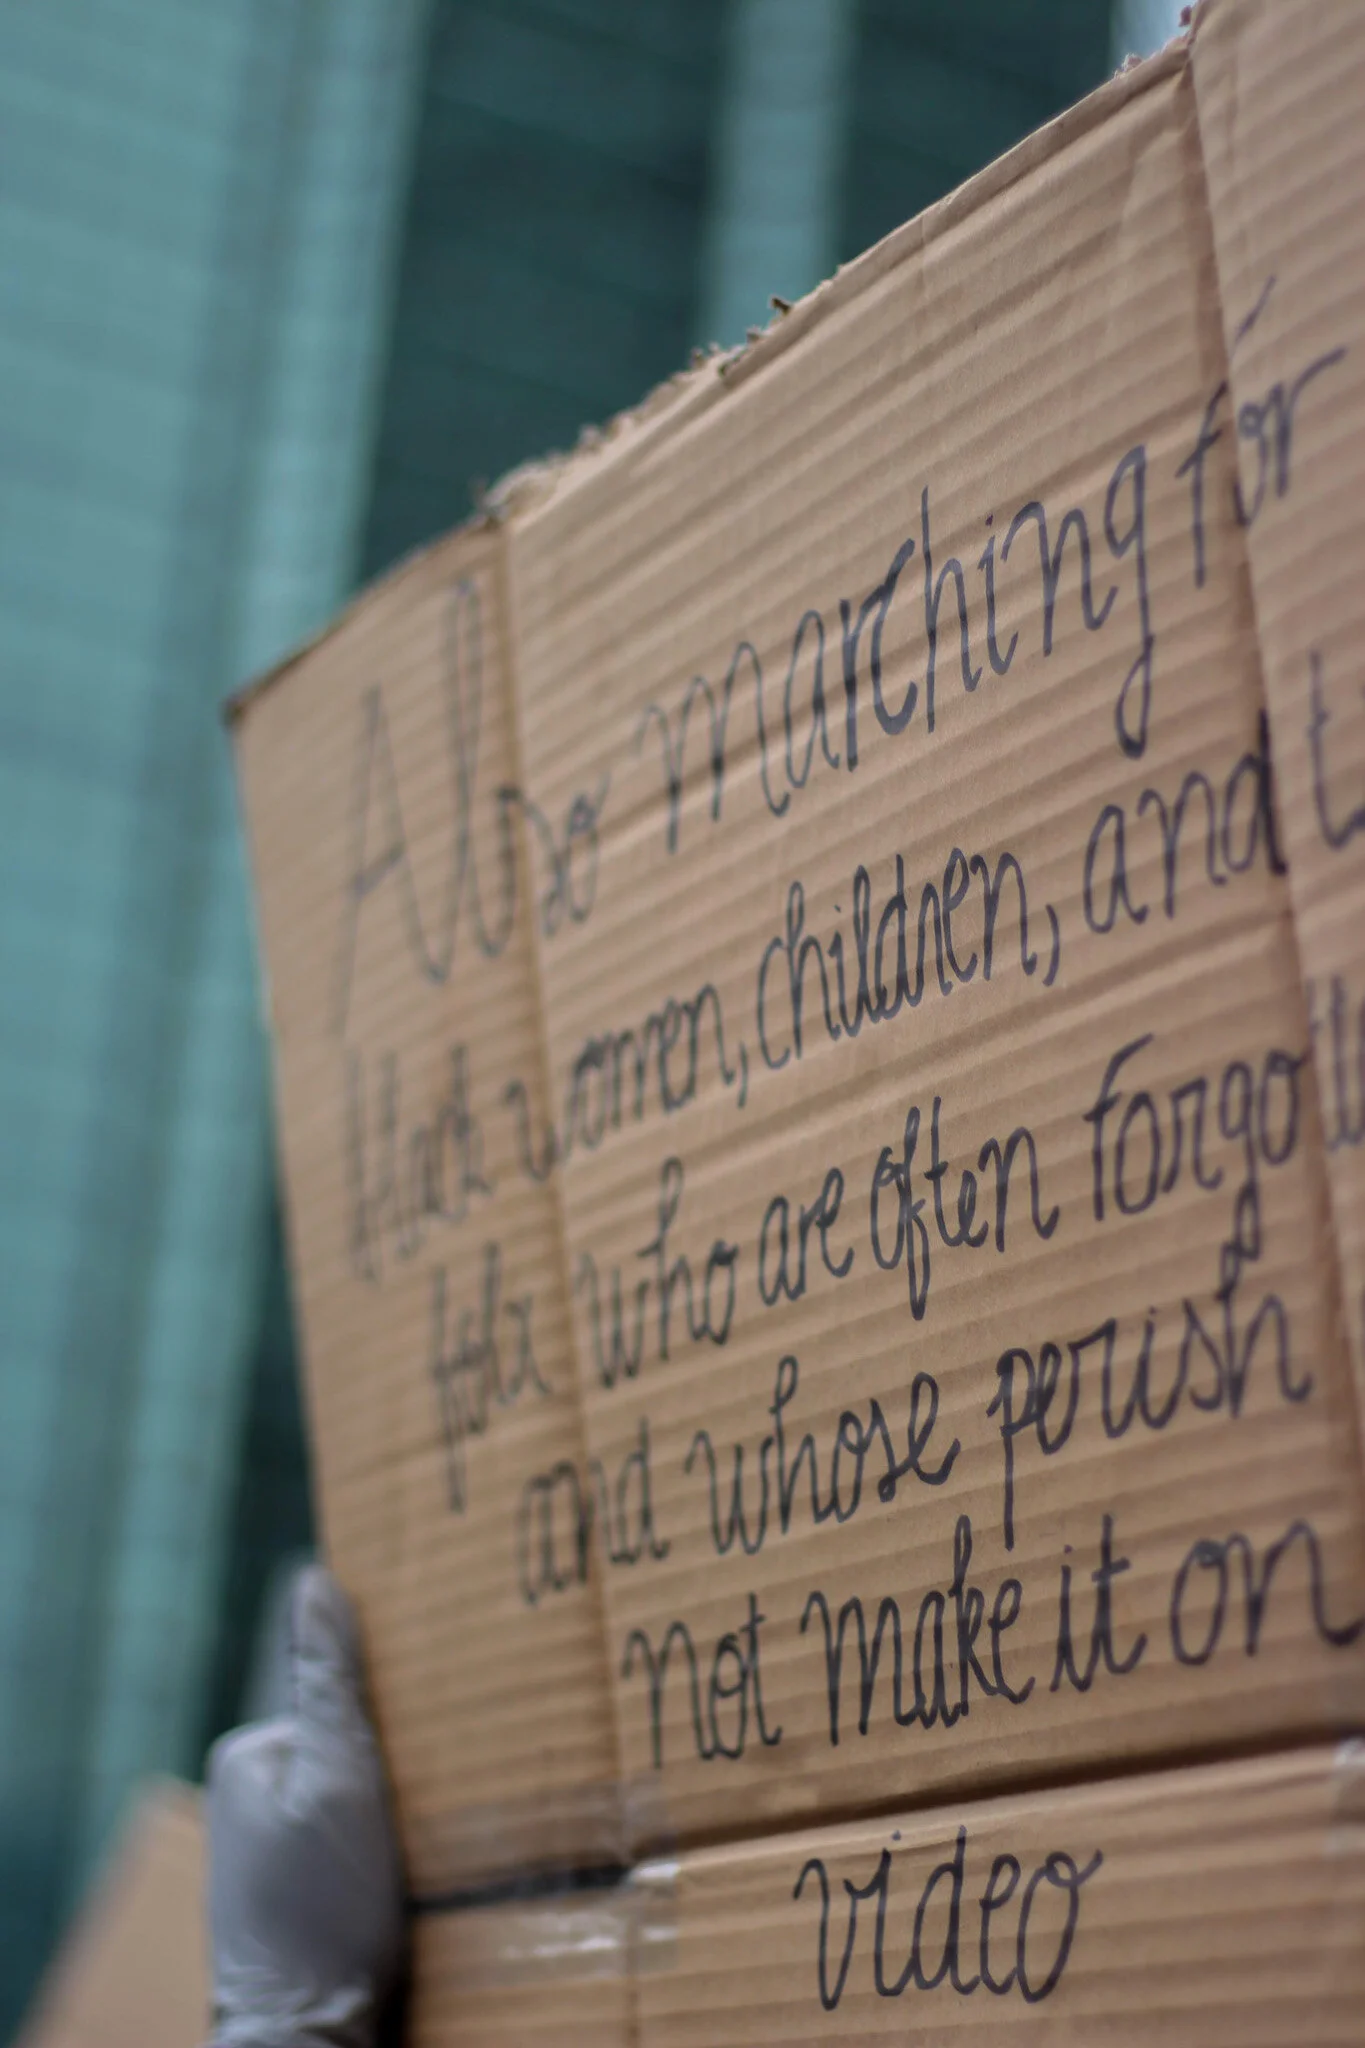 Also marching for
Black women, children, and t
folx who are often forgott
and whose perish
not make it on
video